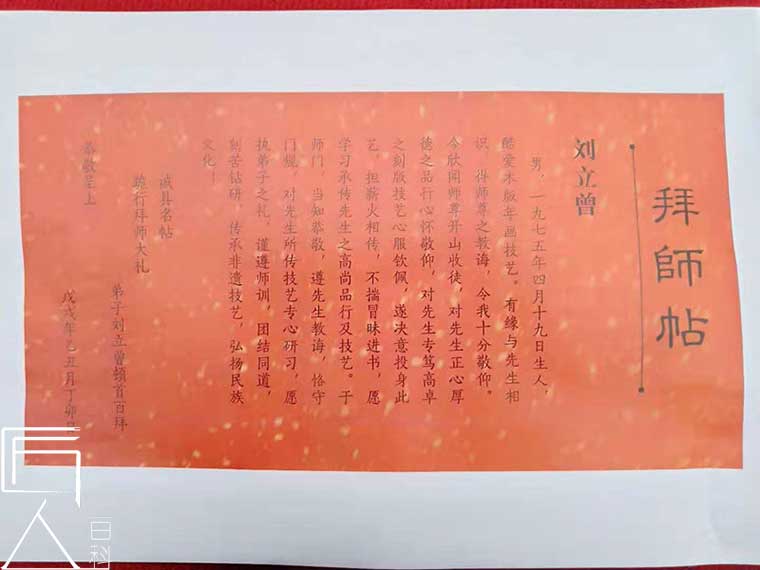 拜師帖
刘立曾
男，一九七五年四月十九日生人，
酷爱木版年画技艺。有缘与先生相
识，得师尊之教诲，令我十分敬仰。
今欣闻师尊开山收徒，对先生正心厚
德之品行心怀敬仰，对先生专笃高卓
之刻版技艺心服钦佩，遂决意投身此
艺，担薪火相传，不揣冒昧进书，愿
学习承传先生之高尚品行及技艺。于
师门，当知恭敬，遵先生教诲，恪守
门规，对先生所传技艺专心研习，愿
执弟子之礼，谨遵师训，团结同道，
刻苦钻研，传承非遗技艺，弘扬民族
文化！
诚具名帖
跪行拜师大礼
恭敬呈上
弟子刘立曾顿首百拜
戊戌年乙丑月丁卯日
匠人
百科